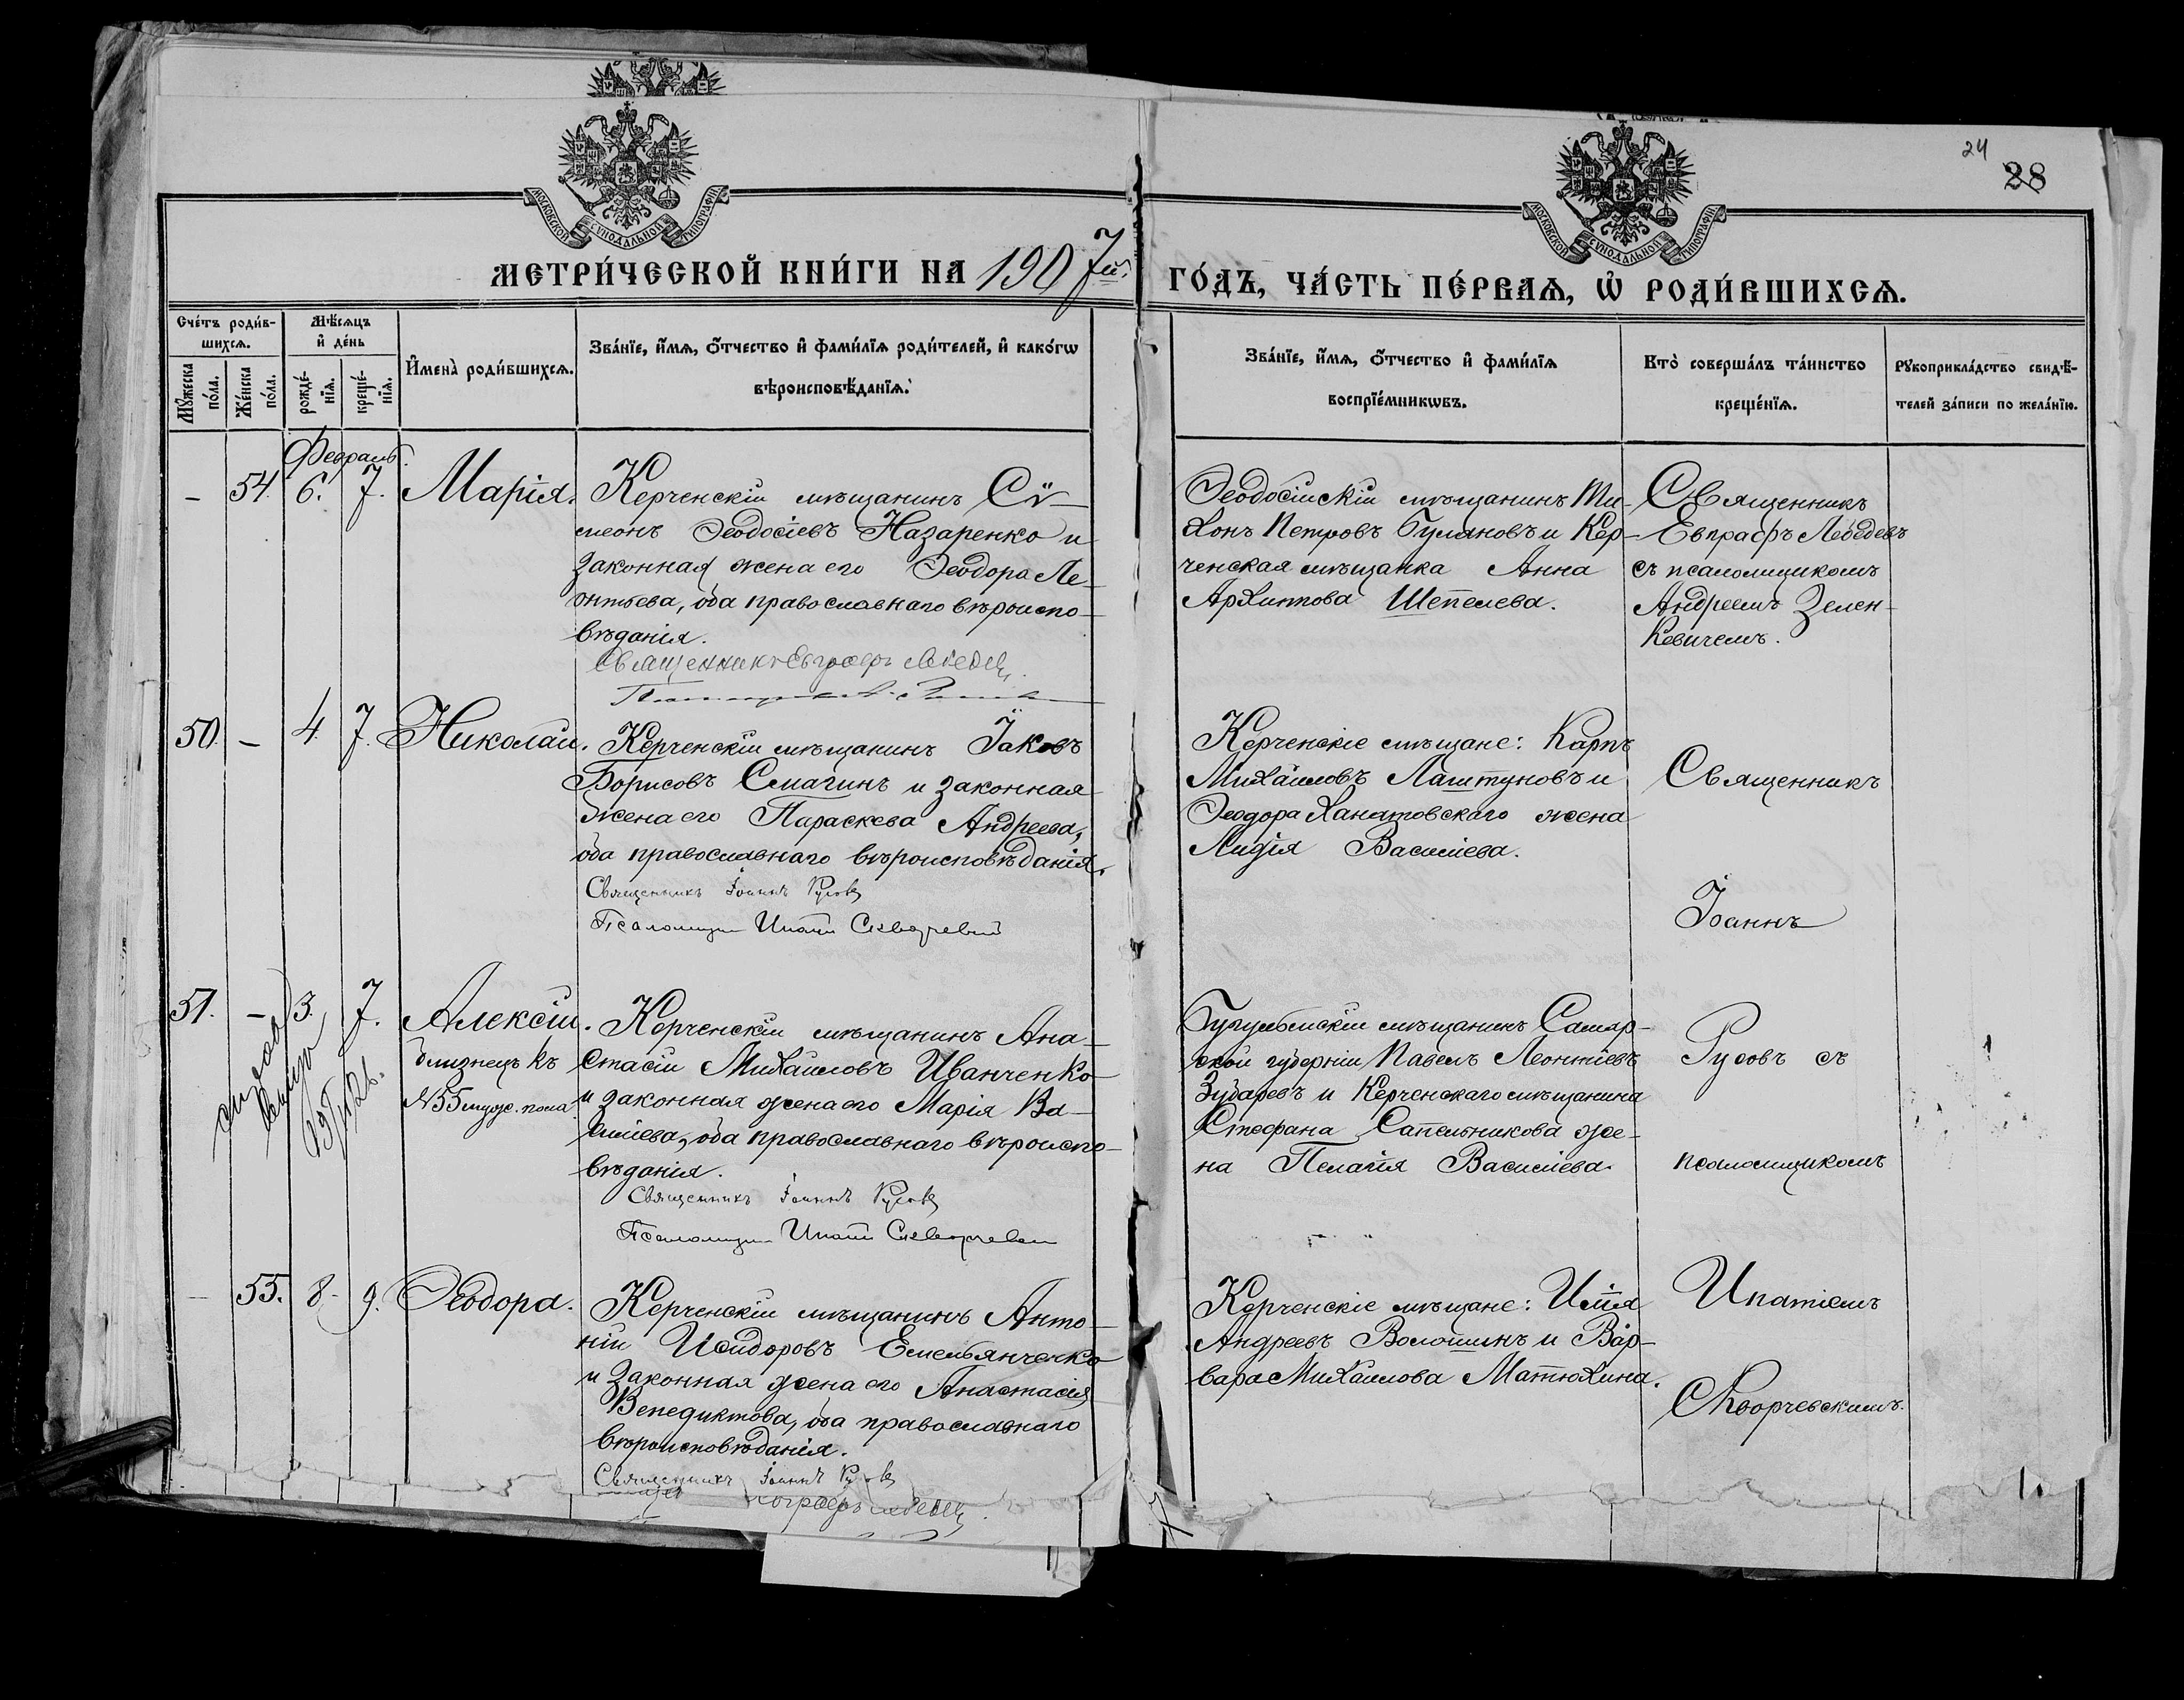 МОСКОВСКОЙ СѴНОДАЛЬНОЙ ТИПОГРАФІИ
МОСКОВСКОЙ СѴНОДАЛЬНОЙ ТИПОГРАФІИ
24
28
МЕТРИ́ЧЕСКОЙ КНИ́ГИ НА 1907й
ГО́ДЪ, ЧА́СТЬ ПЕ́РВАѦ, Ѡ РОДИ́ВШИХСѦ.
Сче́тъ роди́в-
шихсѧ.
Мѣ́сѧцъ
и҆ де́нь
Му́жеска
по́ла.
Же́нска
по́ла.
рожде́-
нїѧ.
креще́-
нїѧ.
И҆мена̀ роди́вшихсѧ.
Зва́нїе, и҆́мѧ, ѻ҆́тчество и҆ фами́лїѧ роди́телей, и҆ како́гѡ
вѣроисповѣ́данїѧ.
Зва́нїе, и҆́мѧ, ѻ҆́тчество и҆ фами́лїѧ
воспрїе́мникѡвъ.
Кто̀ соверша́лъ та́инство
креще́нїѧ.
Рукоприкла́дство свидѣ́-
телей за́писи по жела́нїю.
Февраль.
– 54. 6. 7. Марія.
Керченскій мѣщанинъ Сѵ-
меонъ Ѳеодосіевъ Назаренко и
законная жена его Ѳеодора Ле-
онтьева, оба православнаго вѣроиспо-
вѣданія.
Священникъ Евграфъ Лебедевъ
Ѳеодосійскій мѣщанинъ Ти-
хонъ Петровъ Гуляновъ и Кер-
ченская мѣщанка Анна
Архипова Шепелева.
Священникъ
Евграфъ Лебедевъ
съ псаломщикомъ
Андреемъ Зелен-
кевичемъ.
50. – 4. 7. Николай.
Керченскій мѣщанинъ Іаковъ
Борисовъ Смагинъ и законная
жена его Параскева Андреева,
оба православнаго вѣроисповѣданія.
Священникъ Іоаннъ Русовъ
Псаломщикъ Ипатій Скворчевскій
Керченскіе мѣщане: Карпъ
Михайловъ Лаштуновъ и
Ѳеодора Ханатовскаго жена
Лидія Василіева.
Священникъ
Іоаннъ
51. – 3. 7. Алексій.
близнецъ къ
№55 муж. пола
Керченскій мѣщанинъ Ана-
стасій Михайловъ Иванченко
и законная жена его Марія Ва-
силіева, оба православнаго вѣроиспо-
вѣданія.
Священникъ Іоаннъ Русовъ
Псаломщикъ Ипатій Скворчевскій
Бугульмскій мѣщанинъ Самар-
ской губерніи Павелъ Леонтіевъ
Зубаревъ и Керченскаго мѣщанина
Стефана Сапельникова же-
на Пелагія Василіева.
Русовъ съ
псаломщикомъ
– 55. 8. 9. Ѳеодора.
Керченскій мѣщанинъ Анто-
ній Исидоровъ Емельянченко
и законная жена его Анастасія
Венедиктова, оба православнаго
вѣроисповѣданія.
Священникъ Іоаннъ Русовъ
Евграфъ Лебедевъ
Керченскіе мѣщане: Илія
Андреевъ Волошинъ и Вар-
вара Михайлова Матюхина.
Ипатіемъ
Скворчевскимъ.